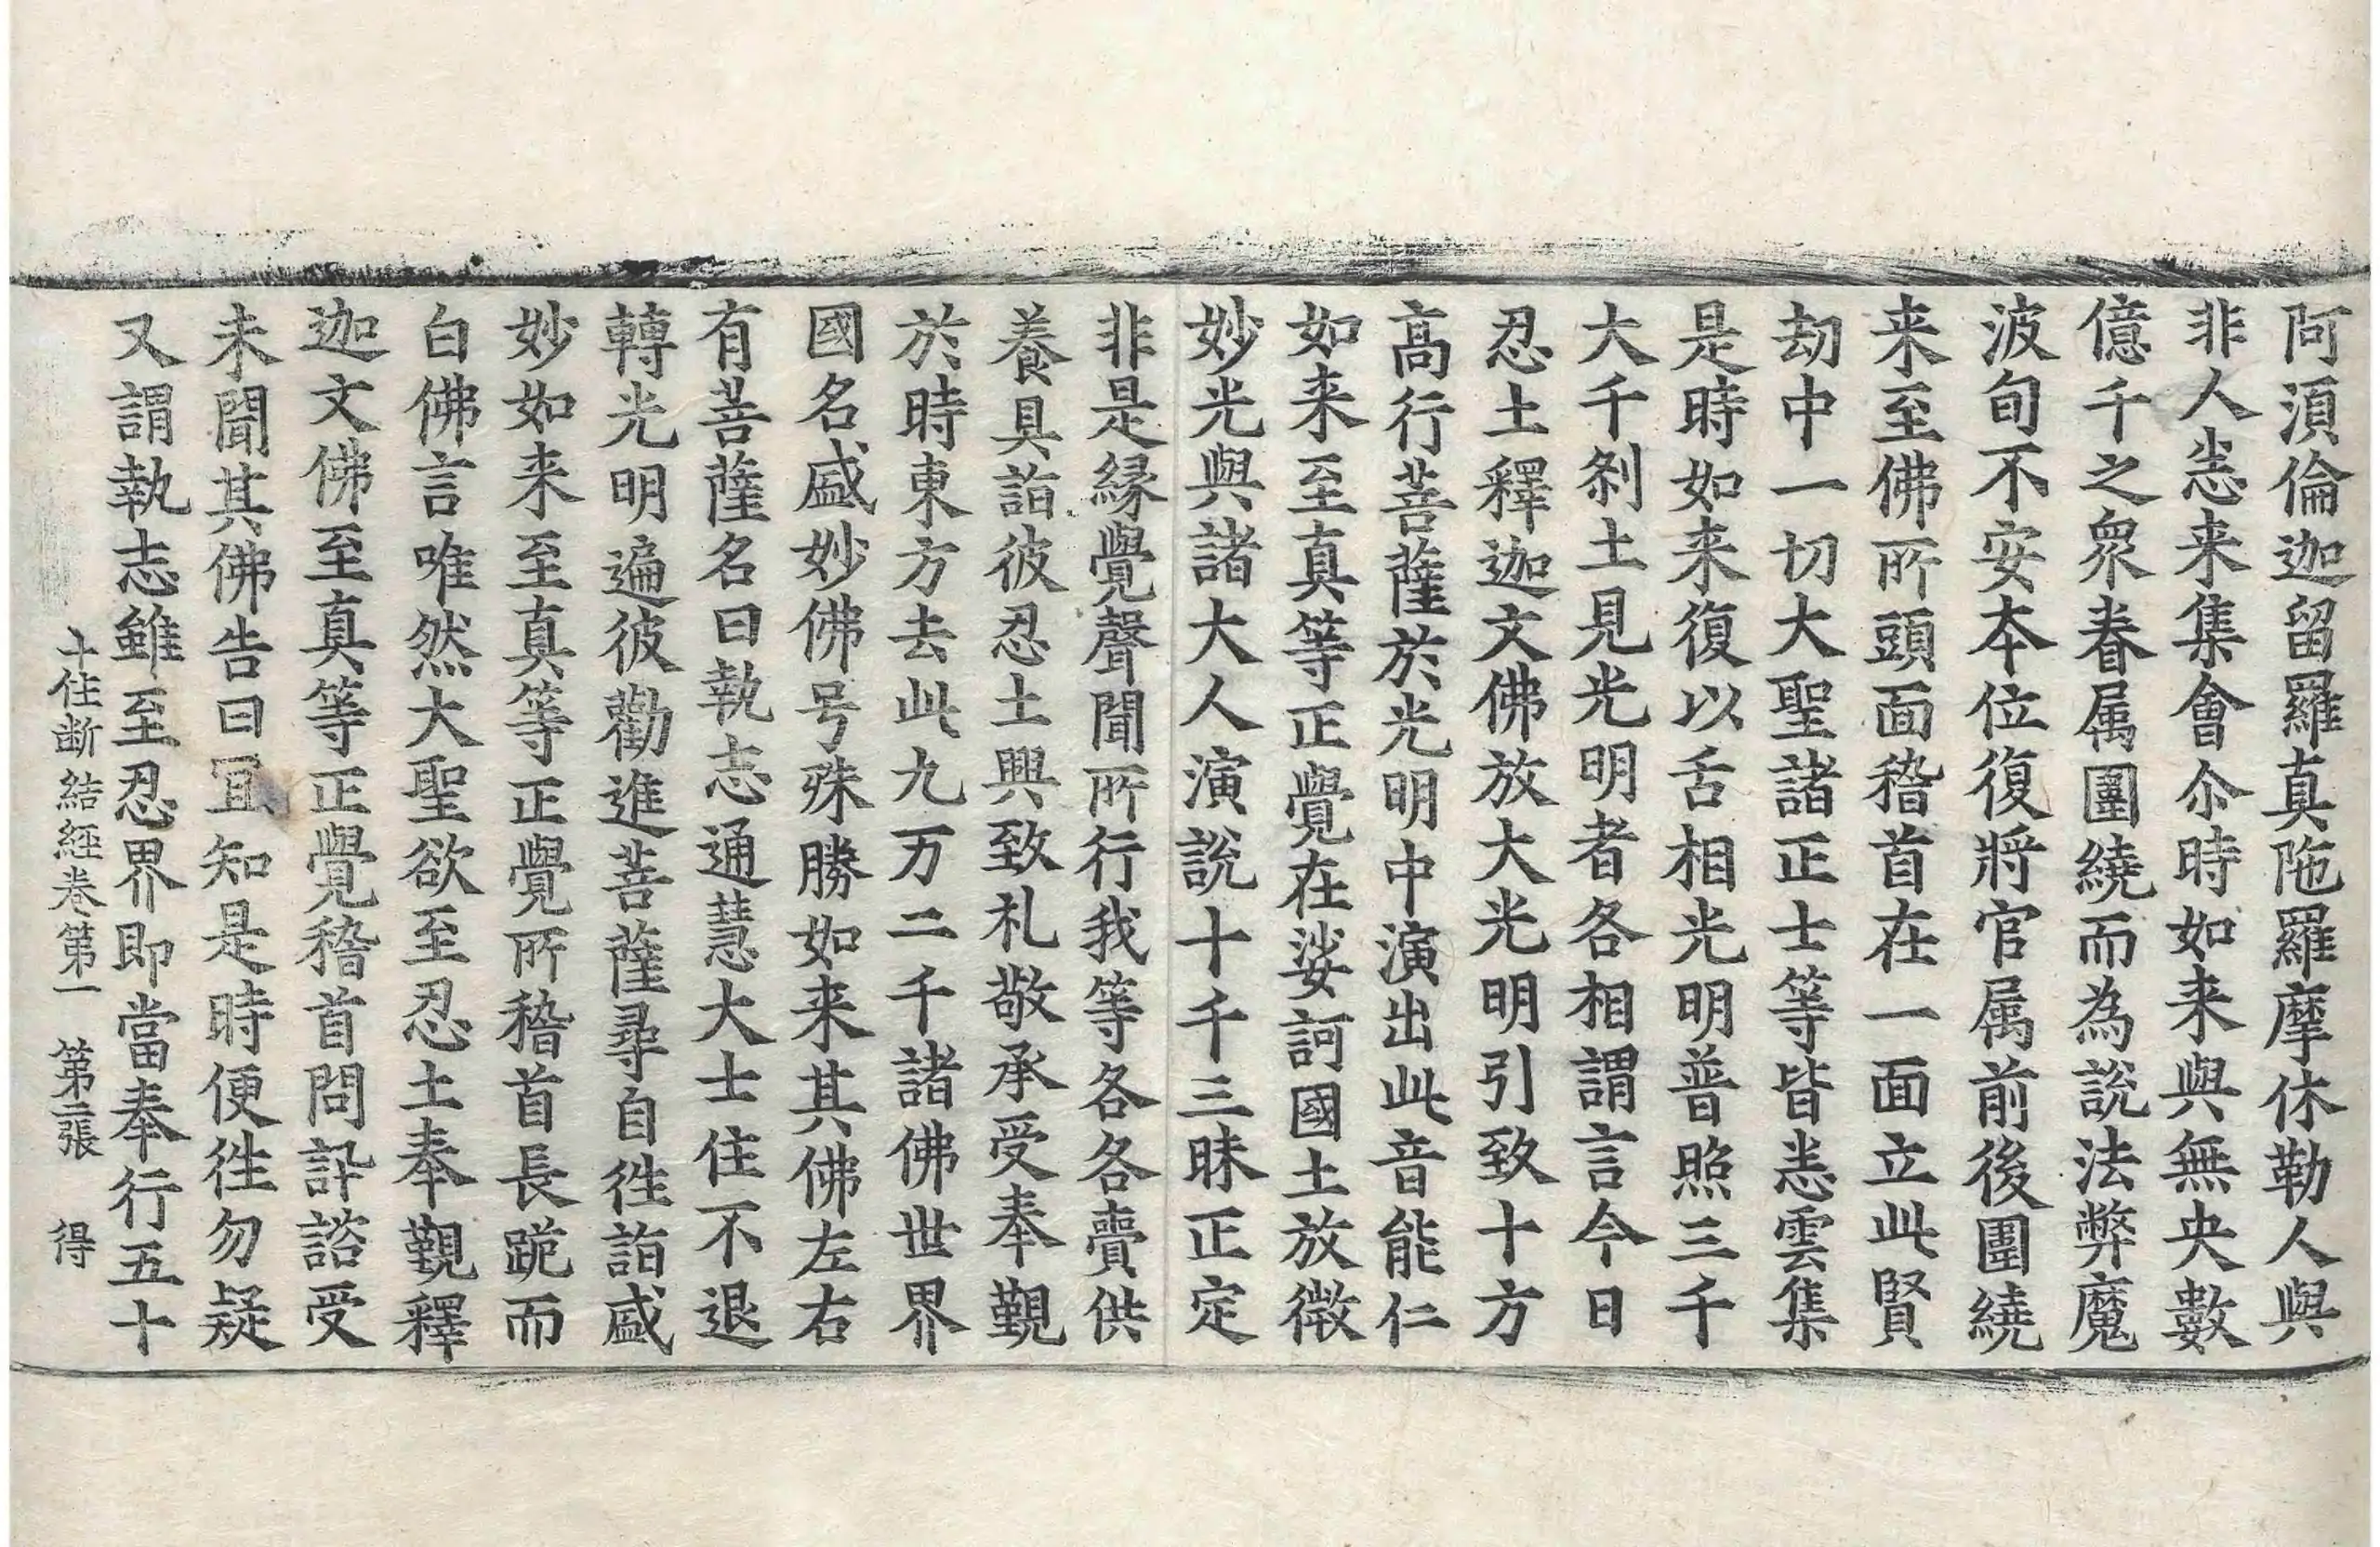 阿湏倫迦留羅真陁羅摩休勒人與
非人悉来集會尒時如来與無央數
億千之衆眷属圍繞而為說法弊魔
波旬不安本位復將官属前後圍繞
来至佛所頭面稽首在一面立此賢
劫中一切大聖諸正士等皆悉雲集
是時如来復以舌相光明普照三千
大千剎土見光明者各相謂言今日
忍土釋迦文佛放大光明引致十方
髙行菩薩於光明中演出此音能仁
如来至真等正覺在娑訶國土放徴
妙光與諸大人演說十千三昧正定
非是縁覺聲聞所行我等各各賷供
養具詣彼忍土興致礼敬承受奉覲
於時東方去此九万二千諸佛世界
國名盛妙佛号殊勝如来其佛左右
有菩薩名曰執志通慧大士住不退
轉光明遍彼勸進菩薩尋自徃詣盛
妙如来至真等正覺所稽首長跪而
白佛言唯然大聖欲至忍土奉覲釋
迦文佛至真等正覺稽首問訊諮受
未聞其佛告曰冝知是時便徃勿疑
又謂執志雖至忍界即當奉行五十
十住断結經卷第一 第二張 得